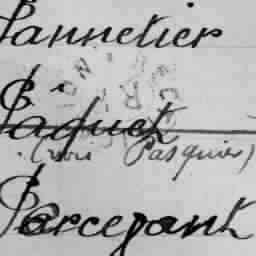 Pannetier
Paquet
(voir Pasquier)
Parcegant